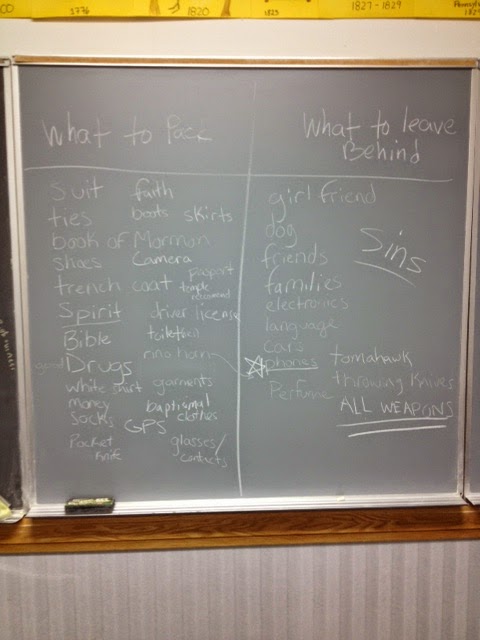 CO
1776
1820
1827-1829
What to Pack
What to leave
Behind
suit
faith
ties
boots
skirts
book of Mormon
shoes
Camera
passport
trench coat
temple
recommend
Spirit
driver license
Bible
good Drugs
white shirt
garments
money
baptismal
clothes
Socks
GPS
Pocket
knife
glasses/
contacts
girl friend
dog
Sins
friends
families
electronics
language
cars
phones
tomahawk
throwing knives
Perfume
ALL WEAPONS